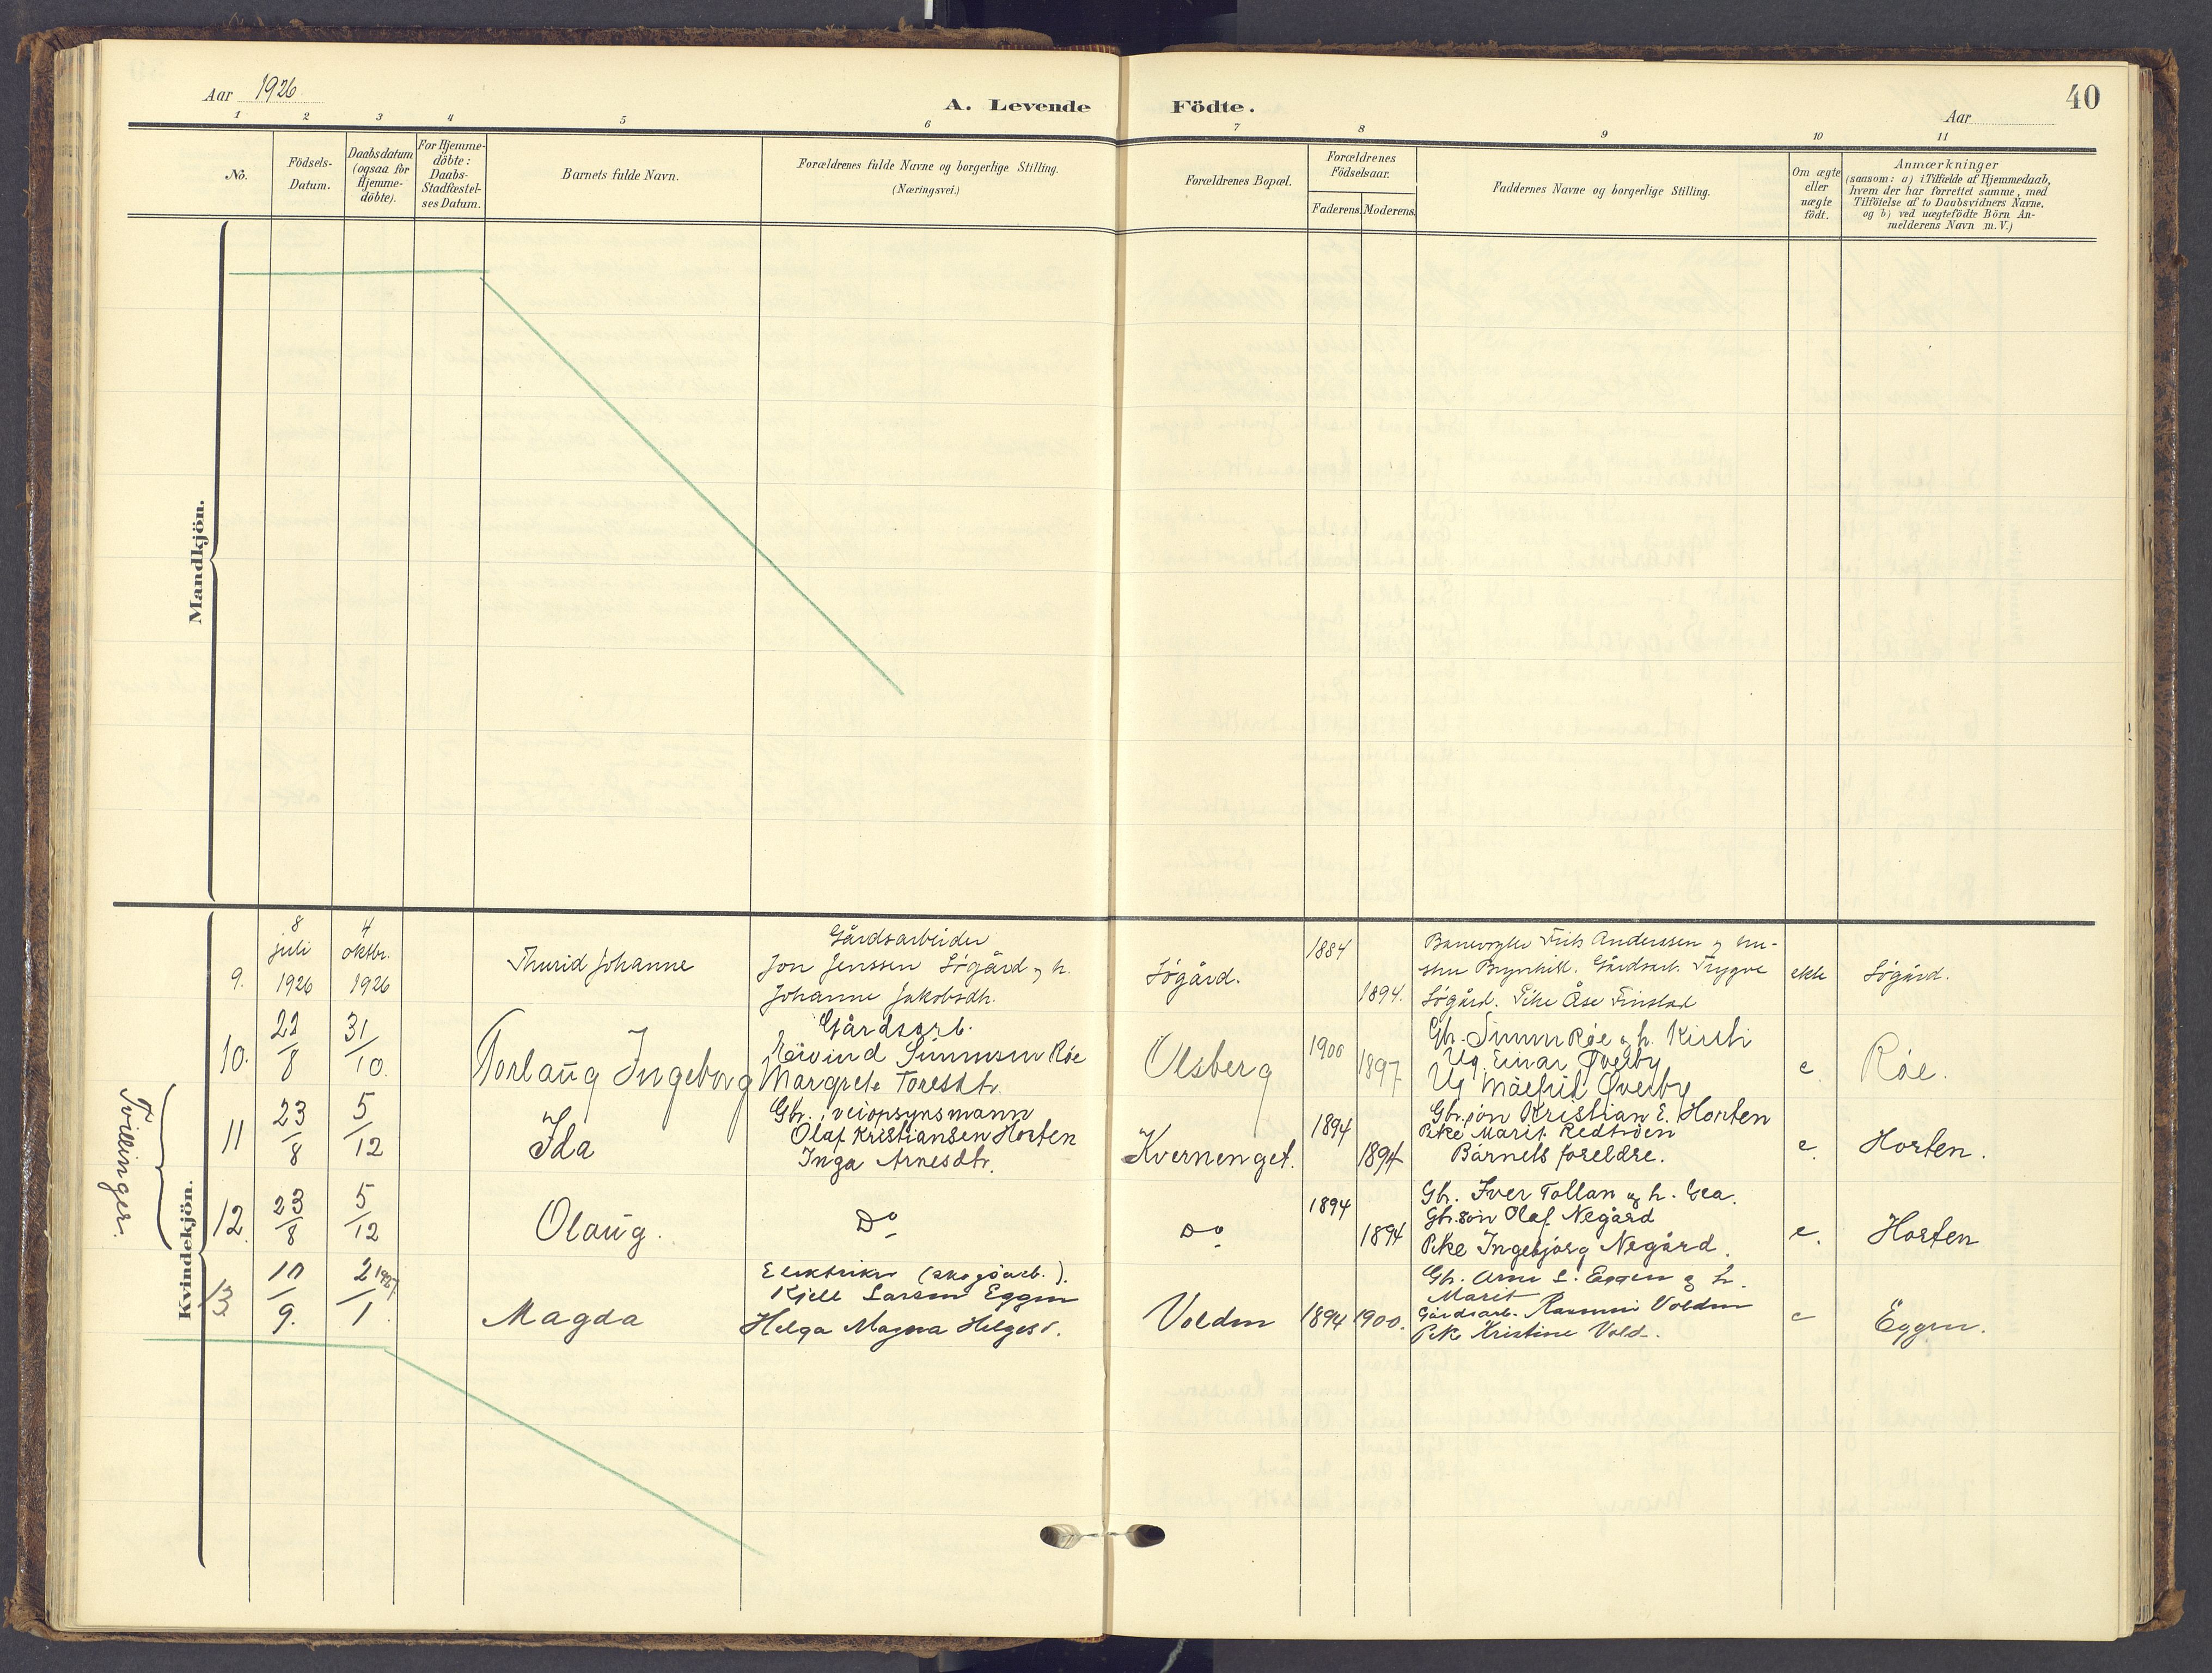 Aar 1926
A. Levende Födte.
40
Aar
1 2 3 4 5 6 7 8 9 10 11
No.
Födsels-
Datum.
Daabsdatum
(ogsaa for
Hjemme-
döbte).
For Hjemme-
döbte:
Daabs-
Stadfæstel-
ses Datum.
Barnets fulde Navn.
Forældrenes fulde Navne og borgerlige Stilling.
(Næringsvei.)
Forældrenes Bopæl.
Forældrenes
Födselsaar.
Faderens. Moderens.
Faddernes Navne og borgerlige Stilling.
Om ægte
eller
uægte
födt.
Anmærkninger
(saasom: a) i Tilfælde af Hjemmedaab,
hvem der har forrettet samme, med
Tilföielse af to Daabsvidners Navne.
og b) ved uægtefödte Börn An-
melderens Navn m. V.)
Mandkjön.
Kvindekjön.
Tvillinger.
9.
8
juli
1926
4
oktbr.
1926
Thurid Johanne
Gårdsarbeider
Jon Jenssen Sógård og h.
Johanne Jakobsdtr.
Sógård.
1884
1894.
Banevogter Frits Anderssen og hu-
stru Brynhild. Gårdsarb. Trygve
Sógård. Pike Åse Finstad
ekte
Sógård.
10.
22
8
31
10.
Torlaug Ingeborg
Gårdsarb.
Eivind Simensen Róe
Margrete Toresdtr.
Olsberg
1900
1897
Gbr. Simen Róe og h. Kirsti
Ug. Einar Óverby
Ug Målfrid Óverby
e
Róe.
11
23
8
5
12
Ida
Gbr. veiopsynsmann
Olaf Kristiansen Horten
Inga Arnesdtr.
Kvernenget.
1894
1894
Gbr.són Kristian E. Horten
Pike Marit
Barnets foreldre.
e.
Horten.
12.
23
8
5
12
Olaug.
Do
Do
1894
1894
Gbr. Iver Tollan og h.
Gbr.són Olaf Negård
Pike Ingebjórg Negård.
e.
Horten
13
10
9.
2 1927
1.
Magda
Elektriker (skogsarb.).
Kjell Larsen Eggen
Helga Magna Helgesd.
Volden
1894 1900.
Gbr. Arne L. Eggen og h.
Marit
Gårdsarb. Volden
Pike Kristine Vold.
e
Eggen.